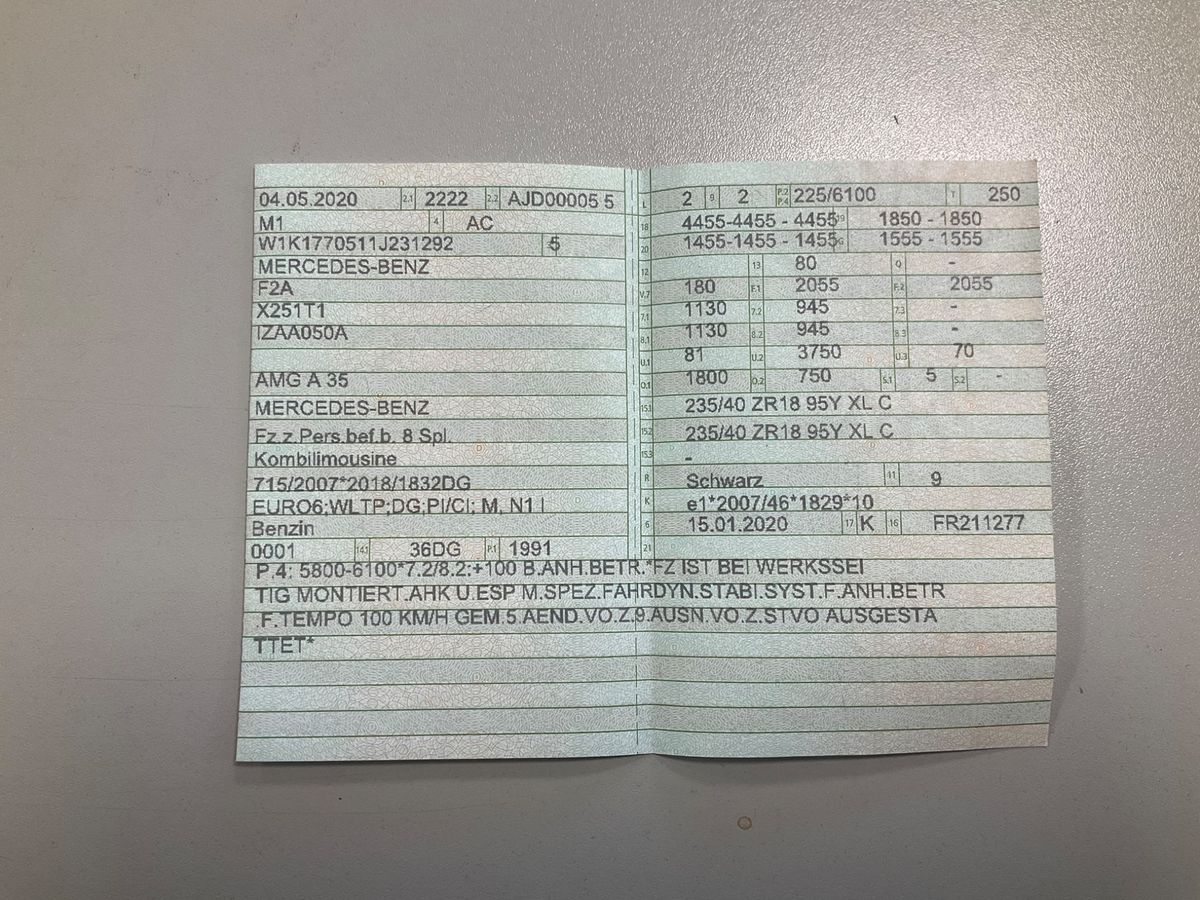 04.05.2020 2.1 2222 2.2 AJD00005 5
M1 4 AC
W1K1770511J231292 5
MERCEDES-BENZ
F2A
X251T1
IZAA050A
AMG A 35
MERCEDES-BENZ
Fz.z.Pers.bef.b. 8 Spl.
Kombilimousine
715/2007*2018/1832DG
EURO6;WLTP;DG;PI/CI; M, N1 I
Benzin
0001 14.1 36DG P.1 1991
L 2 9 2 P.2 P.4 225/6100 T 250
18 4455-4455 - 4455 19 1850 - 1850
20 1455-1455 - 1455 G 1555 - 1555
12 13 80 Q -
V.7 180 F.1 2055 F.2 2055
7.1 1130 7.2 945 7.3 -
8.1 1130 8.2 945 8.3 -
U.1 81 U.2 3750 U.3 70
O.1 1800 O.2 750 S.1 5 S.2 -
15.1 235/40 ZR18 95Y XL C
15.2 235/40 ZR18 95Y XL C
15.3 -
R Schwarz 11 9
K e1*2007/46*1829*10
6 15.01.2020 17 K 16 FR211277
21
P.4: 5800-6100*7.2/8.2:+100 B.ANH.BETR.*FZ IST BEI WERKSSEI
TIG MONTIERT.AHK U.ESP M.SPEZ.FAHRDYN.STABI.SYST.F.ANH.BETR
.F.TEMPO 100 KM/H GEM.5.AEND.VO.Z.9.AUSN.VO.Z.STVO AUSGESTA
TTET*